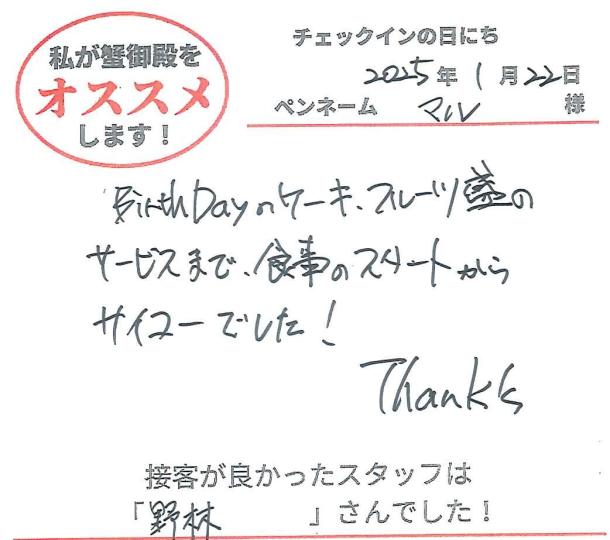 私が蟹御殿を
オススメ
します!
チェックインの日にち
2025年1月22日
ペンネーム マル 様
BirthDayのケーキ、フルーツ盛の
サービスまで、食事のスタートから
サイコーでした!
Thanks
接客が良かったスタッフは
「野林 」さんでした!